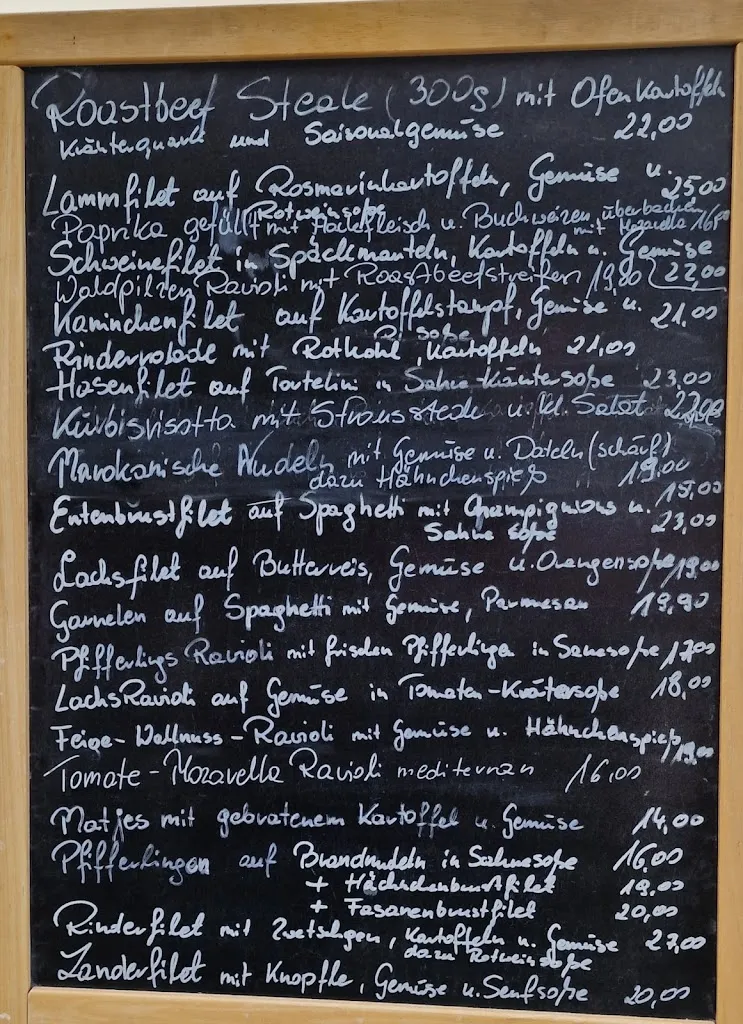 Roastbeef Steak (300g) mit Ofenkartoffeln
Kräuterquark und Saisonalgemüse 22,00
Lammfilet auf Rosmarinkartoffeln, Gemüse u. 25,00
Rotweinsoße
Paprika gefüllt mit Hackfleisch u. Buchweizen überbacken mit Mozarella
Schweinefilet in Späckmanteln, Kartoffeln u. Gemüse 22,00
Waldpilzen Ravioli mit Roastbeefstreifen 19,80
Kaninchenfilet auf Kartoffelstampf, Gemüse u. 21,00
R. soße
Rinderrolade mit Rotkohl, Kartoffeln 21,00
Hasenfilet auf Tortelini in Sahne-Kräutersoße 23,00
Kürbisrisotto mit Straussteak u. kl. Salat
Marokanische Nudeln mit Gemüse u. Dateln (scharf)
dazu Hähnchenspieß 19,00
Entenbrustfilet auf Spaghetti mit Champignions u. 23,00
Sahne soße
Lachsfilet auf Butterreis, Gemüse u. Orangensoße 19,00
Garnelen auf Spaghetti mit Gemüse, Parmesan 19,90
Pfifferlings Ravioli mit frischen Pfifferlingen in Sanesoße 17,00
LachsRavioli auf Gemüse in Tomaten-Kräutersoße 18,00
Feige-Wallnuss-Ravioli mit Gemüse u. Hähnchenspieß 19,00
Tomate-Mozavella Ravioli mediterran 16,00
Matjes mit gebratenem Kartoffel u. Gemüse 14,00
Pfifferlingen auf Brandnudeln in Sahnesoße 16,00
+ Hächnchenbrustfilet 19,00
+ Fasanenbrustfilet 20,00
Rinderfilet mit Zwetshgen, Kartoffeln u. Gemüse 27,00
dazu Rotweinsoße
Zanderfilet mit Knöpfle, Gemüse u. Senfsoße 20,00